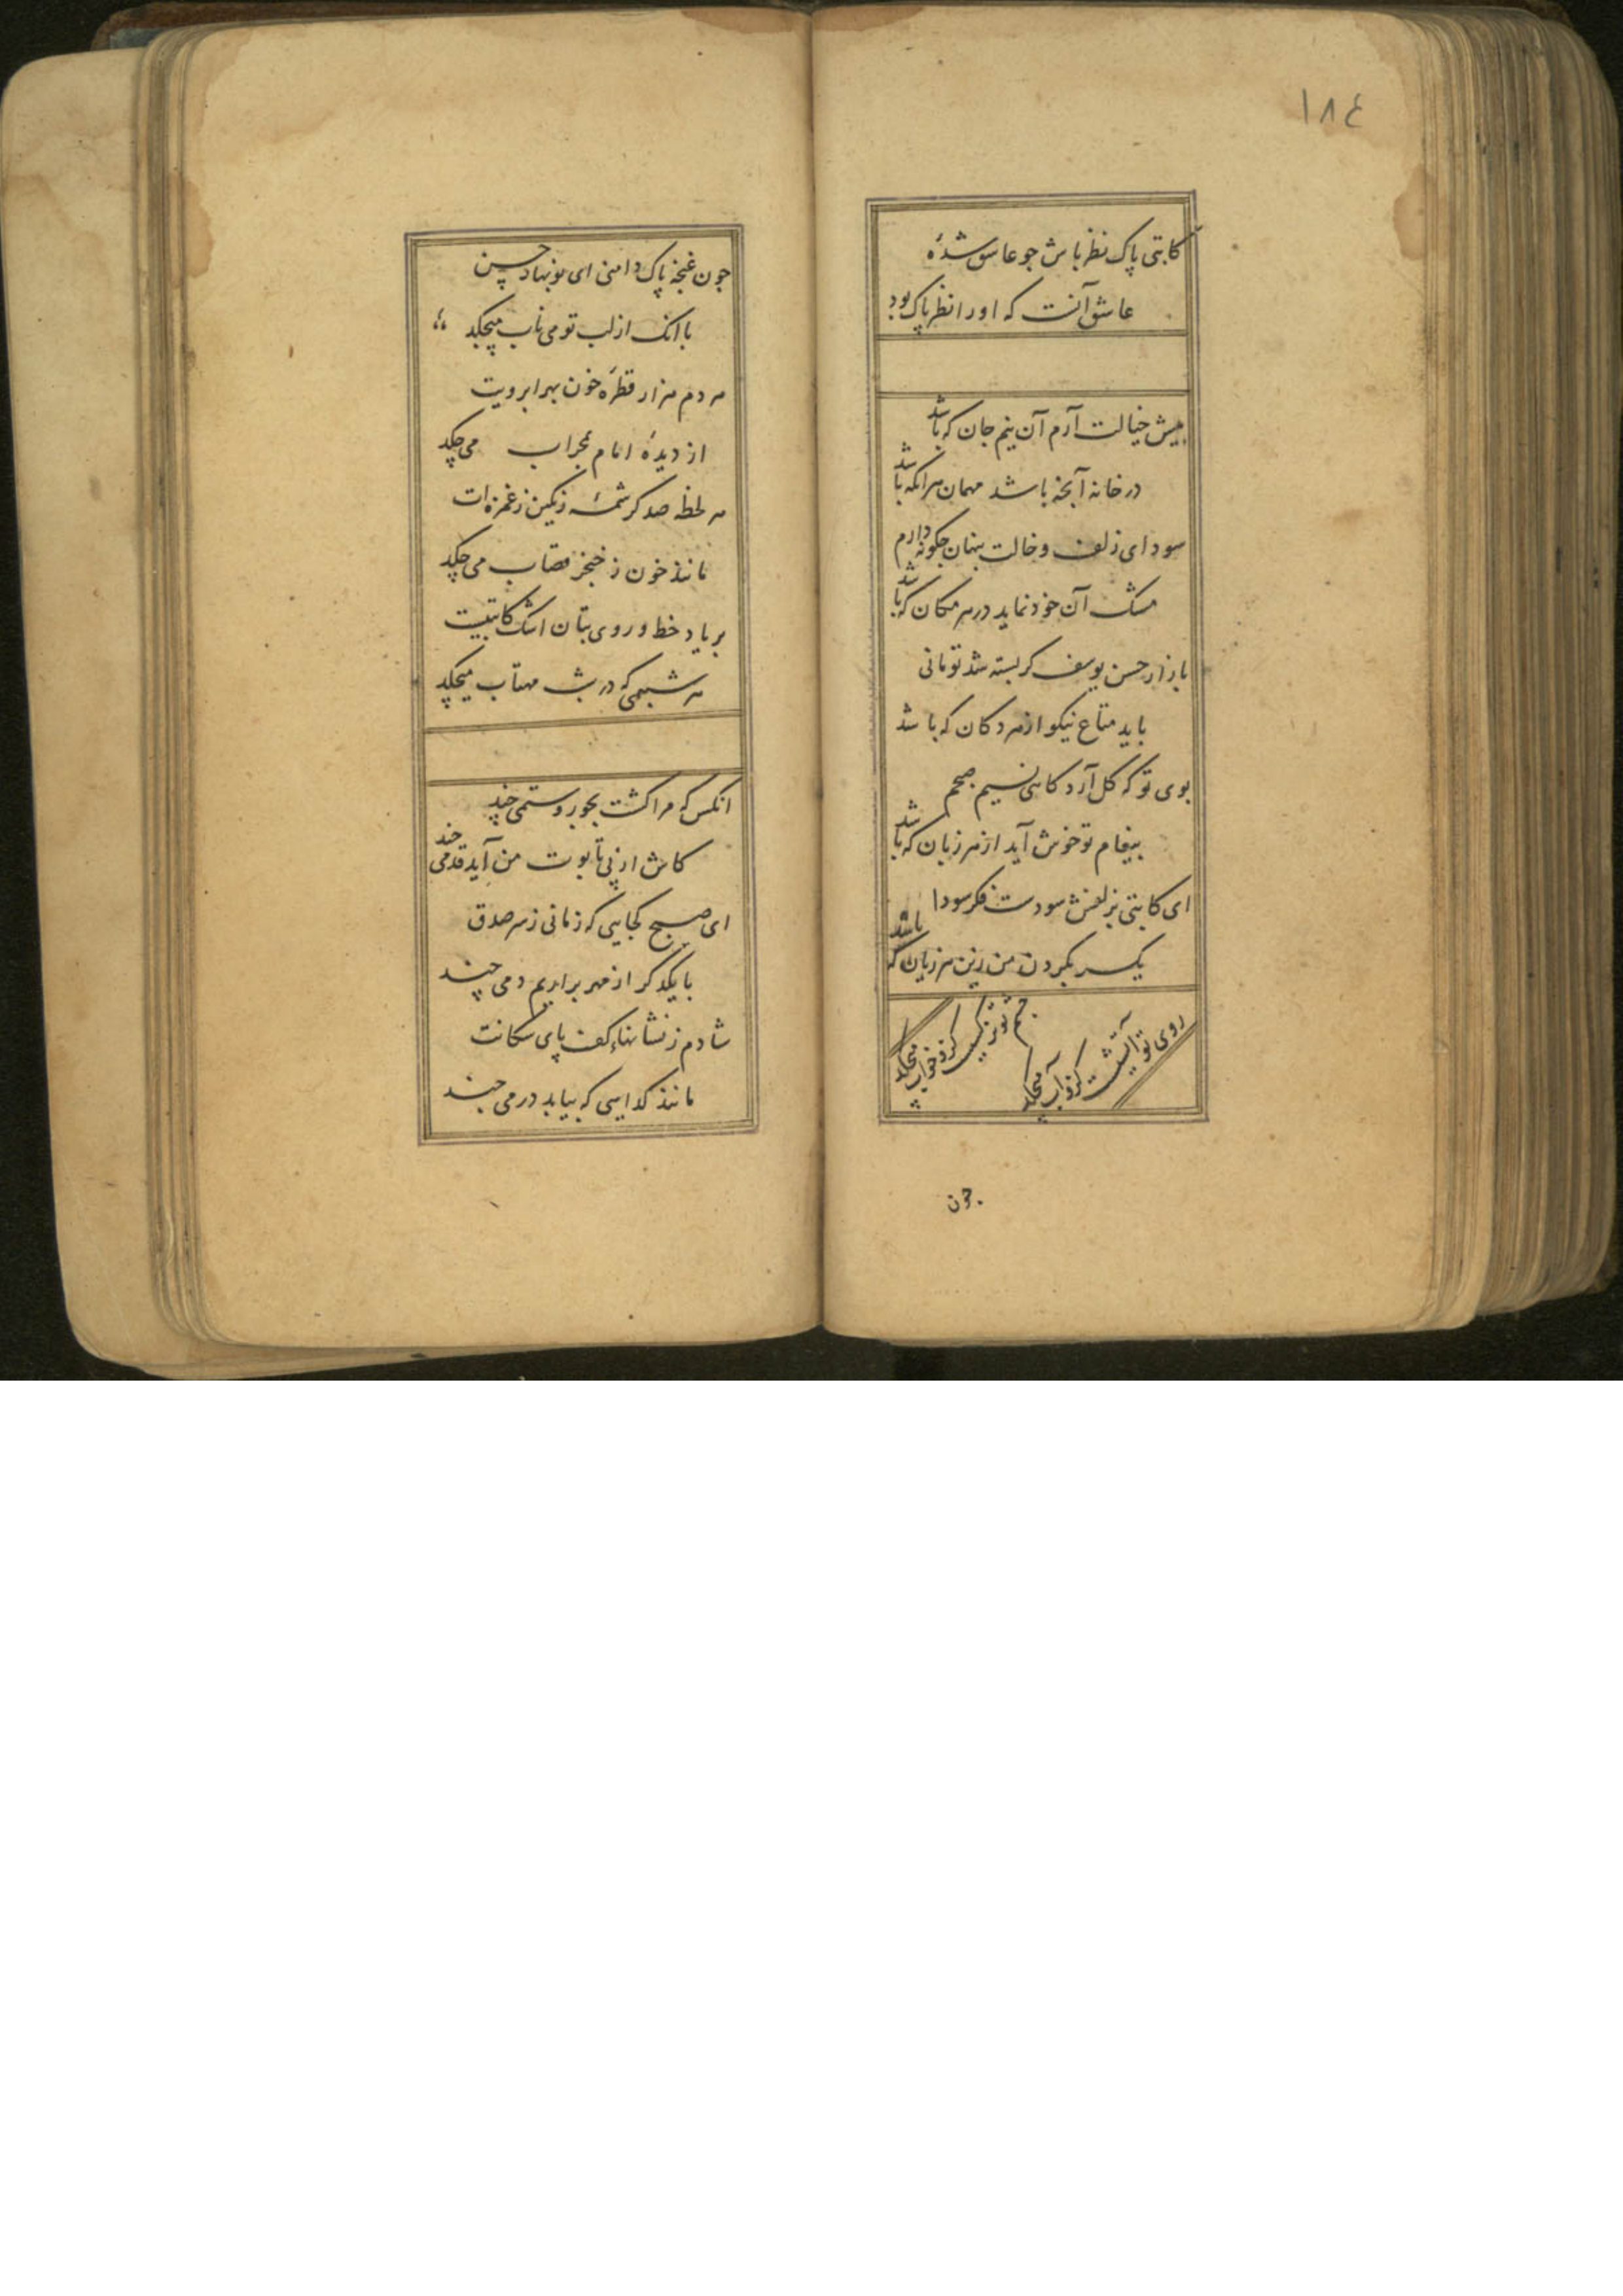 ١٨٤
کاتبی پاک نظر باش جو عاشق شدۀ
عاشق آنست که او را نظر پاک بود
پیش خیالت آرم آن نیم جان که باشد
در خانه آنجه باشد مهمان هرانکه باشد
سودای زلف و خالت پنهان جکونه دارم
مشک آن خود نماید در هر مکان که باشد
بازار حسن یوسف کر بسته شد تو مانی
باید متاع نیکو از هر دکان که باشد
بوی تو که کل آرد کاهی نسیم صبحم
پیغام تو خوش آید از هر زبان که باشد
ای کاتبی بزلفش سودست فکر سودا
یکسر بکردن من زین هر زیان که باشد
روی تو آتشیست کزو آب میچکد
جشم تو نرکسیست کزو خواب میچکد
جون
جون غنجه پاک دامنی ای نونهاد حسن
با انک از لب تو می ناب میچکد
هر دم هزار قطرۀ خون بهر ابرویت
از دیدۀ امام بمحراب می چکد
هر لحظه صد کرشمۀ رنکین ز غمزه‌ات
مانند خون ز خنجر قصاب می چکد
بر یاد خط و روی بتان اشک کاتبیست
هر شبنمی که در شب مهتاب میچکد
انکس که مرا کشت بجور و ستمی چند
کاش از پی تابوت من آید قدمی چند
ای صبح کجایی که زمانی ز سر صدق
با یکدکر از مهر براریم دمی چند
شادم ز نشانهاء کف پای سکانت
مانند کدایی که بیابد درمی چند